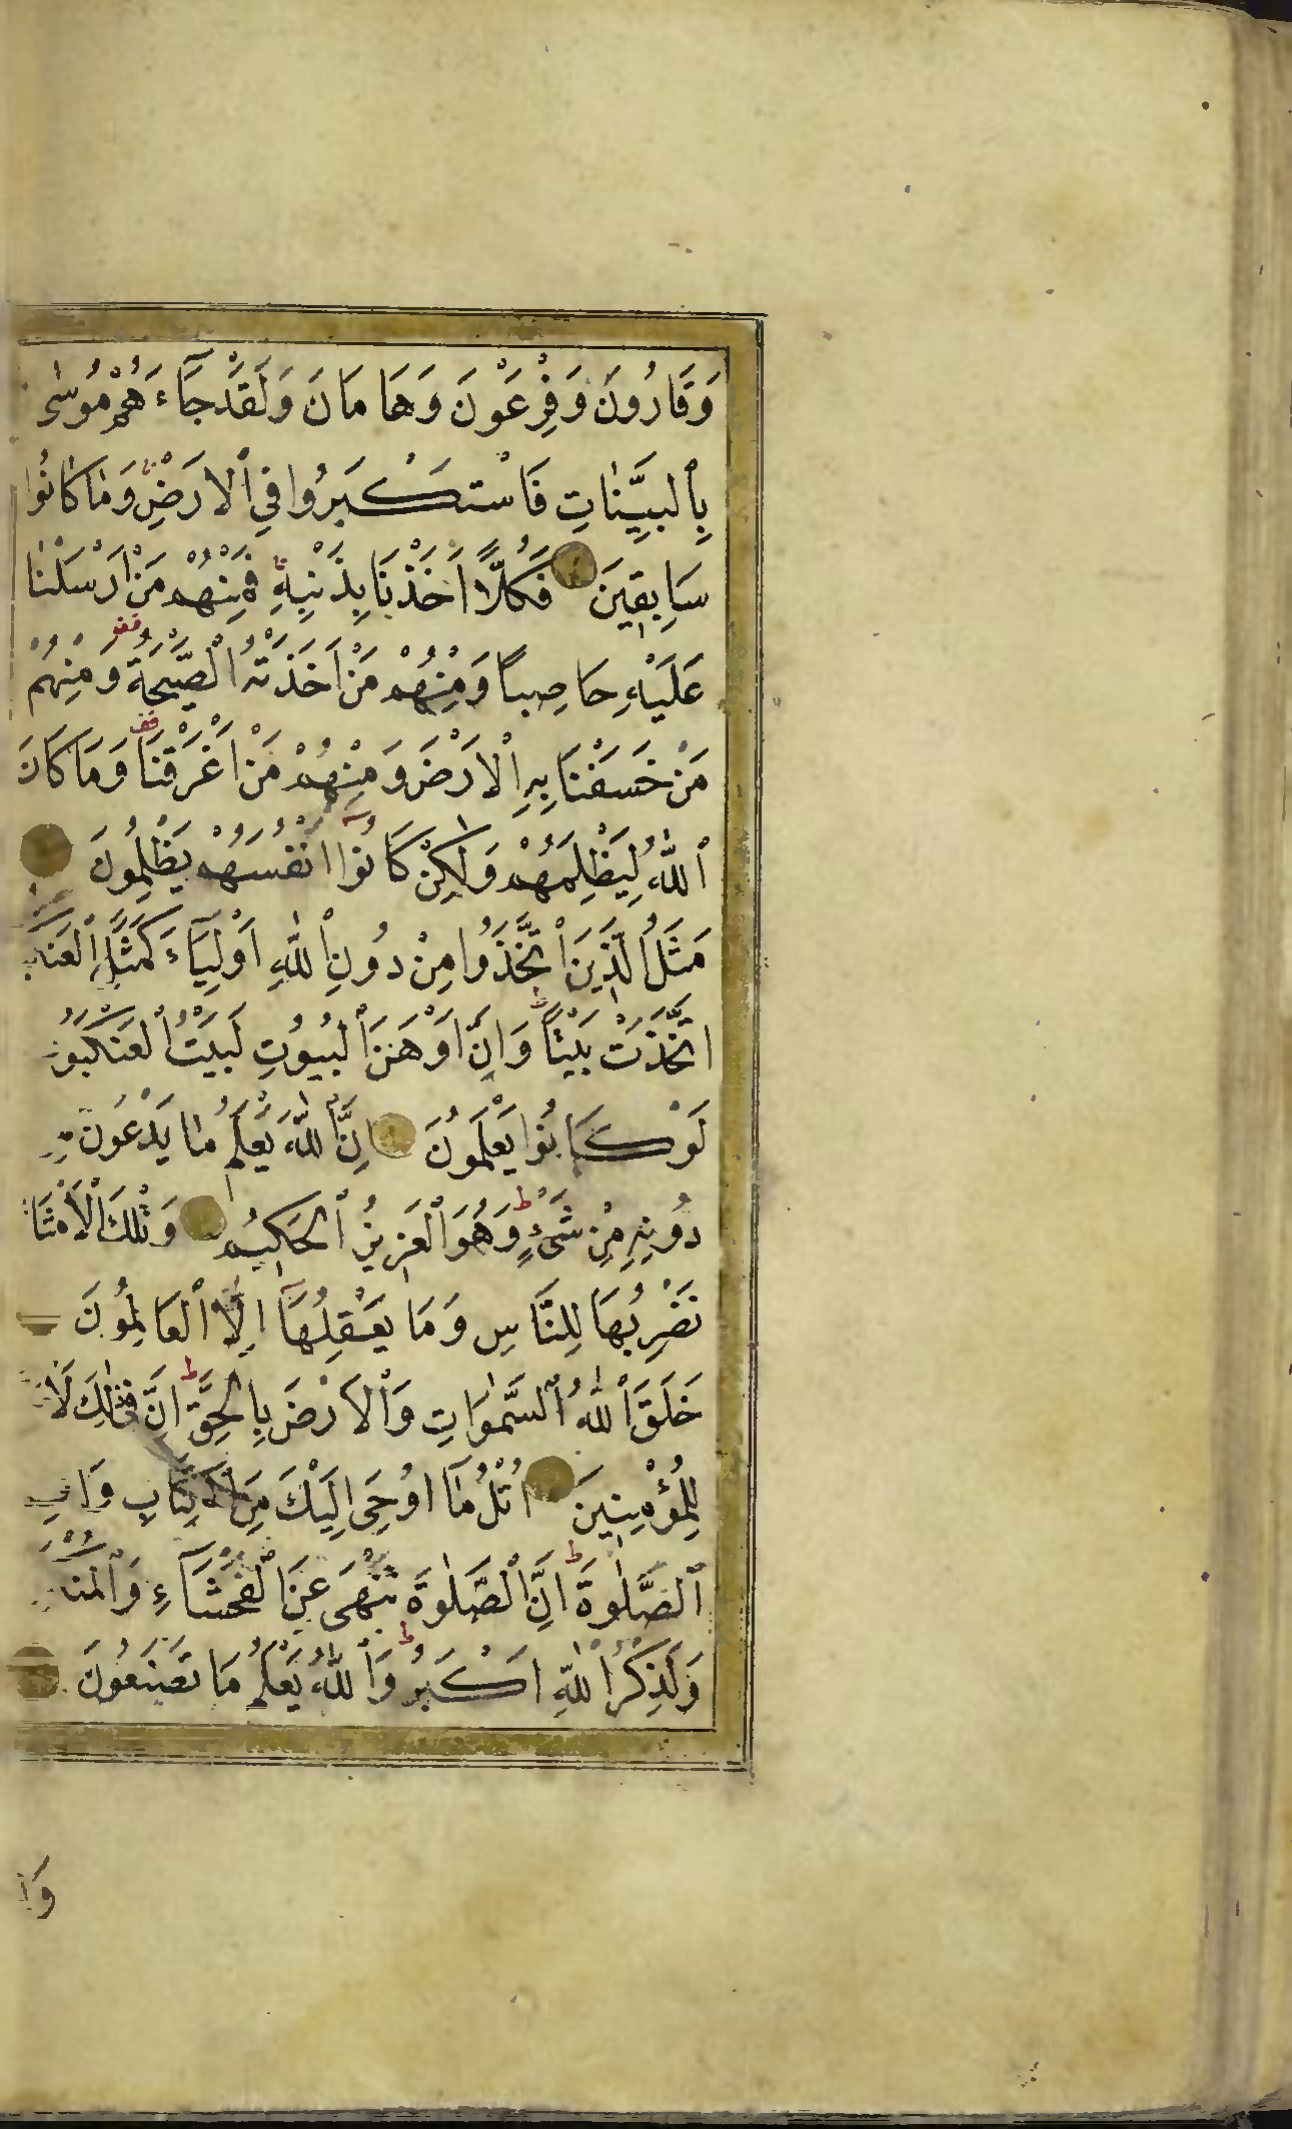 وَقَارُونَ وَفِرْعَوْنَ وَهَامَانَ وَلَقَدْ جَآءَهُمْ مُوسٰى
بِٱلبَيِّنَاتِ فَاسْتَكْبَرُوا فِي ٱلارَضِْ وَمَا كَانُوا
سَابِقِينَ فَكُلًّا اَخَذْنَا بِذَنْبِهِ فَمِنْهُمْ مَنْ اَرْسَلْنَا
عَلَيْهِ حَاصِباً وَمِنْهُمْ مَنْ اَخَذَتْهُ ٱلصَّيْحَةُ وَمِنْهُمْ
مَنْ خَسَفْنَا بِهِ ٱلارَْضَ وَمِنْهُمْ مَنْ اَغْرَقْنَا وَمَا كَانَ
ٱللّٰهُ لِيَظْلِمَهُمْ وَلٰكِنْ كَانُوا اَنْفُسَهُمْ يَظْلِمُونَ
مَثَلُ ٱلَّذِينَ ٱتَّخَذُوا مِنْ دُونِ ٱللّٰهِ اَوْلِيَآءَ كَمَثَلِ ٱلْعَنْكَب
اتَّخَذَتْ بَيْتًا وَاِنَّ اَوْهَنَ ٱلبُيُوتِ لَبَيْتُ ٱلعَنْكَبُو
لَوْ كَانُوا يَعْلَمُونَ اِنَّ ٱللّٰهَ يَعْلَمُ مَا يَدْعُونَ مِ
دُونِهِ مِنْ شَىْءٍ وَهُوَ ٱلْعَزِيزُ ٱلحَكِيمُ وَتِلْكَ ٱلْاَمْثَا
نَضْرِبُهَا لِلنَّاسِ وَمَا يَعْقِلُهَآ اِلَّا ٱلعَالِمُونَ
خَلَقَ ٱللّٰهُ ٱلسَّمٰوَاتِ وَٱلاَرْضَ بِالْحَقِّ اِنَّ فِى ذٰلِكَ لَا
لِلْمُؤْمِنِينَ اُتْلُ مَآ اُوحِىَ اِلَيْكَ مِنَ ٱلْكِتَابِ وَاَقِ
ٱلصَّلٰوةَ اِنَّ ٱلصَّلٰوةَ تَنْهَى عَنِ ٱلْفَحْشَآءِ وَٱلْمُنْكَ
وَلَذِكْرُ ٱللّٰهِ اَكْبَرُ وَٱللّٰهُ يَعْلَمُ مَا تَصْنَعُونَ